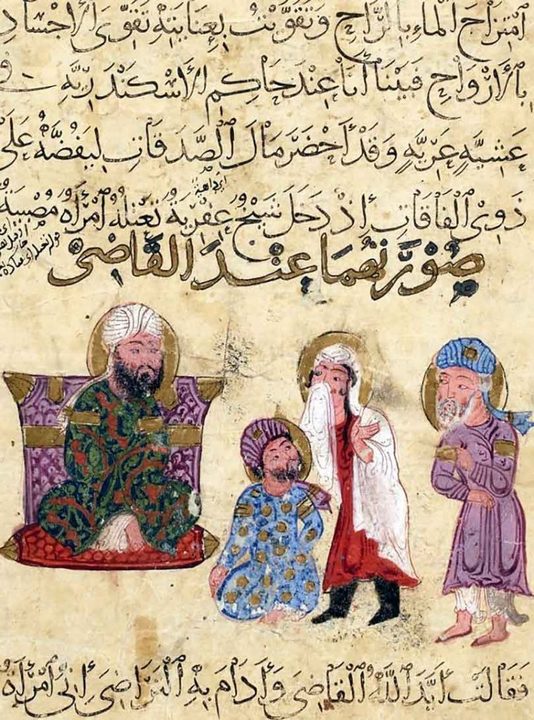 امْتِزَاجَ الْمَاءِ بِالرَّاحِ وَتَقَوَّيْتُ بِعِنَايَتِهِ تَقَوِّيَ الْأَجْسَادِ
بِالْأَرْوَاحِ فَبَيْنَا أَنَا عِنْدَ حَاكِمِ الْإِسْكَنْدَرِيَّةِ
عَشِيَّةٍ عَرِيَّةٍ وَقَدْ أَحْضَرَ مَالَ الصَّدَقَاتِ لِيَفُضَّهُ عَلَى
ذَوِي الْفَاقَاتِ إِذْ دَخَلَ شَيْخٌ عِفْرِيَةٌ تَعْتِلُهُ امْرَأَةٌ مُصْبِيَةٌ
صُورَتُهُمَا عِنْدَ الْقَاضِي
فَقَالَتْ أَيَّدَ اللَّهُ الْقَاضِيَ وَأَدَامَ بِهِ التَّرَاضِيَ إِنِّي امْرَأَةٌ